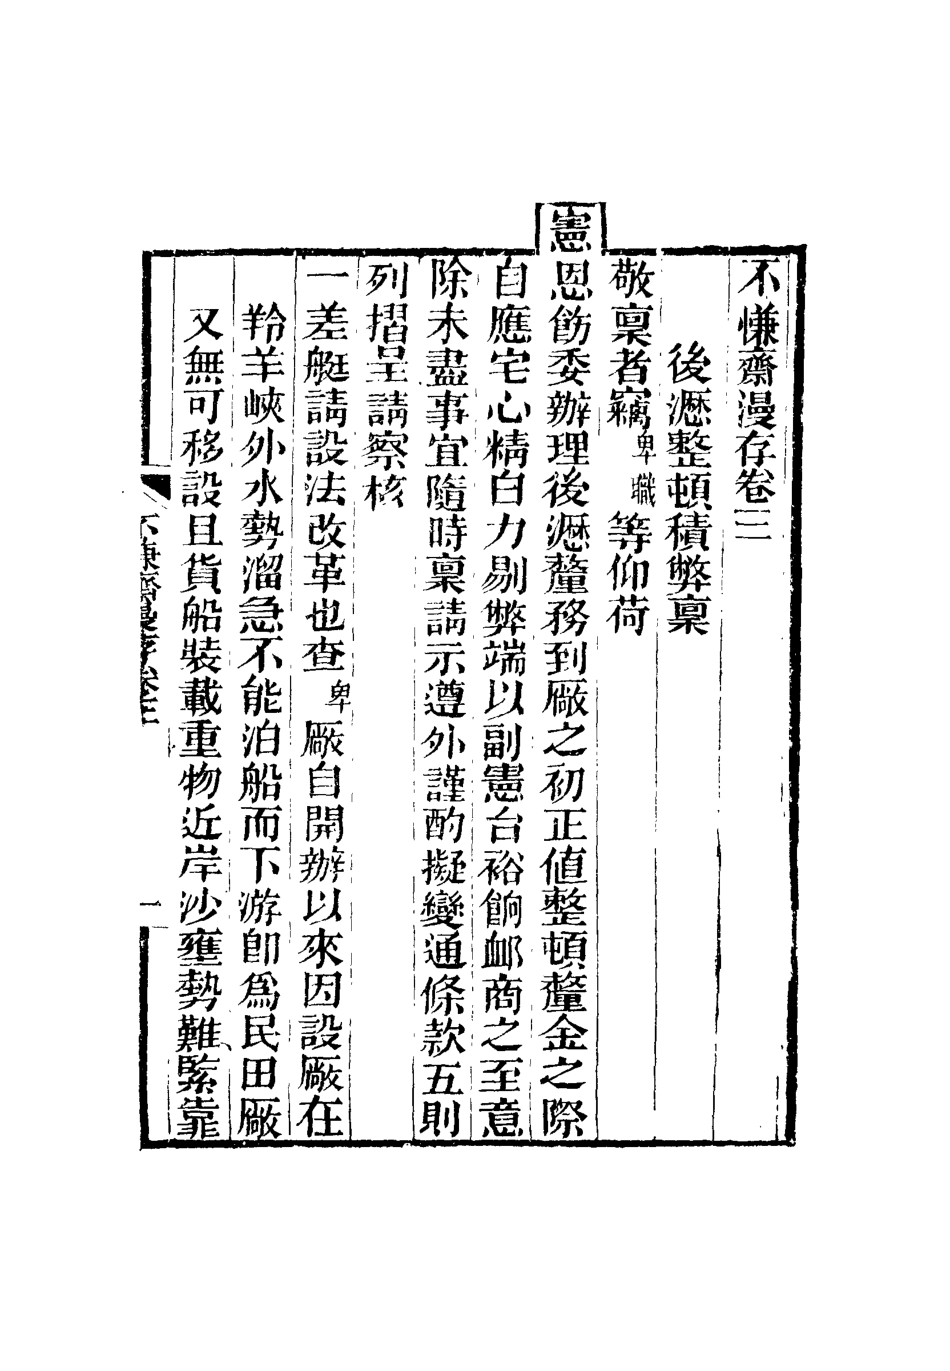 不慊齋漫存卷三
後瀝整頓積弊稟
敬稟者竊卑職等仰荷
憲恩飭委辦理後瀝釐務到廠之初正値整頓釐金之際
自應宅心精白力剔弊端以副憲台裕餉卹商之至意
除未盡事宜隨時稟請示遵外謹酌擬變通條款五則
列摺呈請察核
一差艇請設法改革也查卑廠自開辦以來因設廠在
羚羊峽外水勢溜急不能泊船而下游卽爲民田廠
又無可移設且貨船裝載重物近岸沙壅勢難緊靠
不慊齋漫存卷三
一